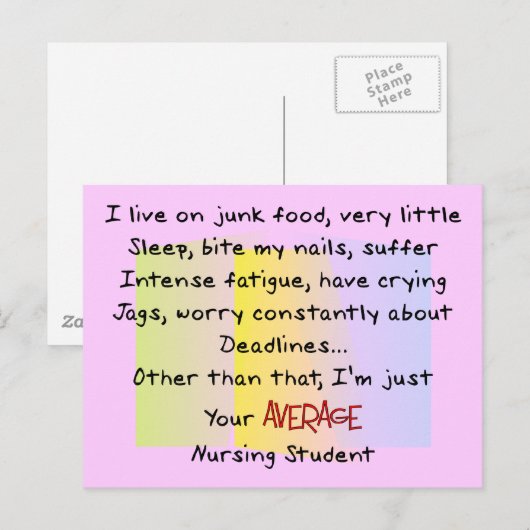 Place
Stamp
Here
I live on junk food, very little
Sleep, bite my nails, suffer
Intense fatigue, have crying
Jags, worry constantly about
Deadlines...
Other than that, I'm just
Your AVERAGE
Nursing Student